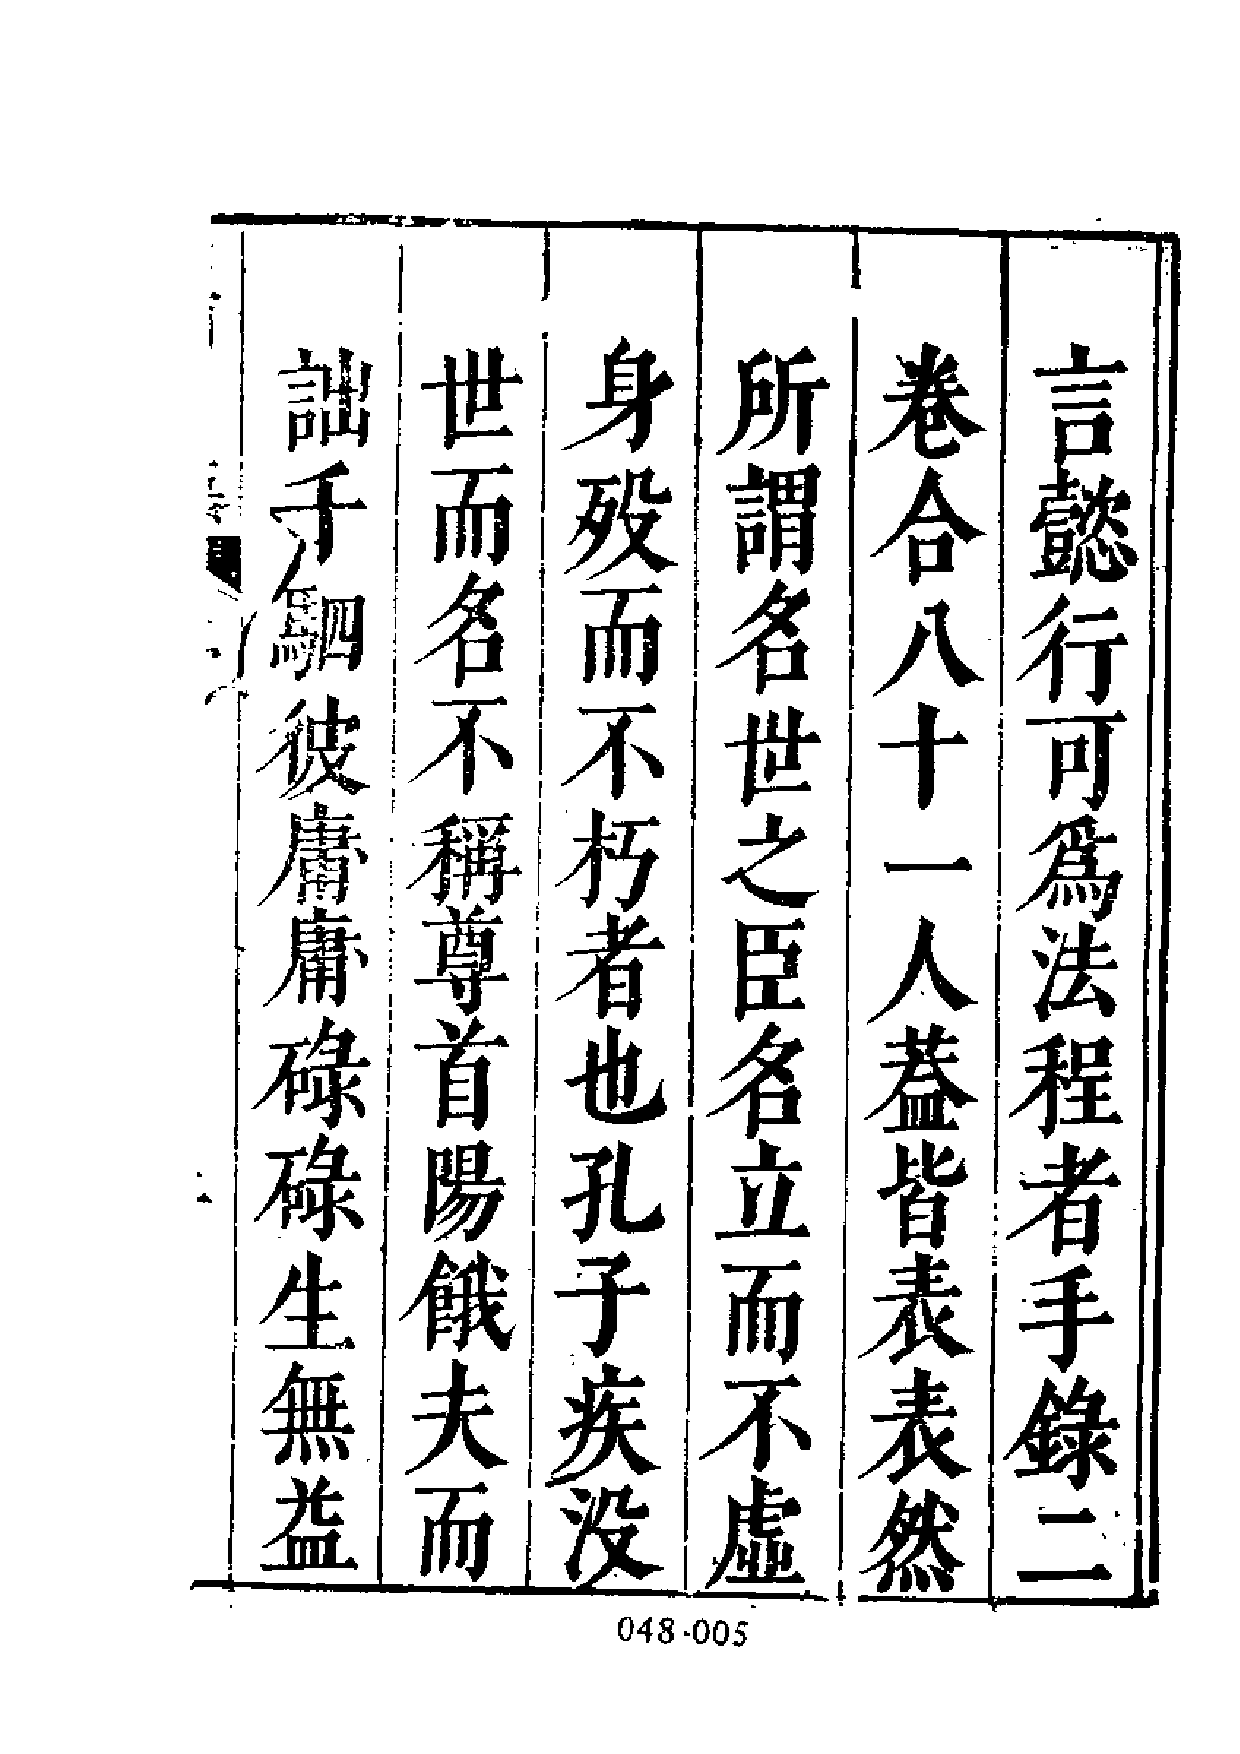 言懿行可為法程者手錄二
卷合八十一人葢皆表表然
所謂名世之臣名立而不虛
身歿而不朽者也孔子疾没
世而名不稱尊首陽餓夫而
詘千駟彼庸庸碌碌生無益
048-005